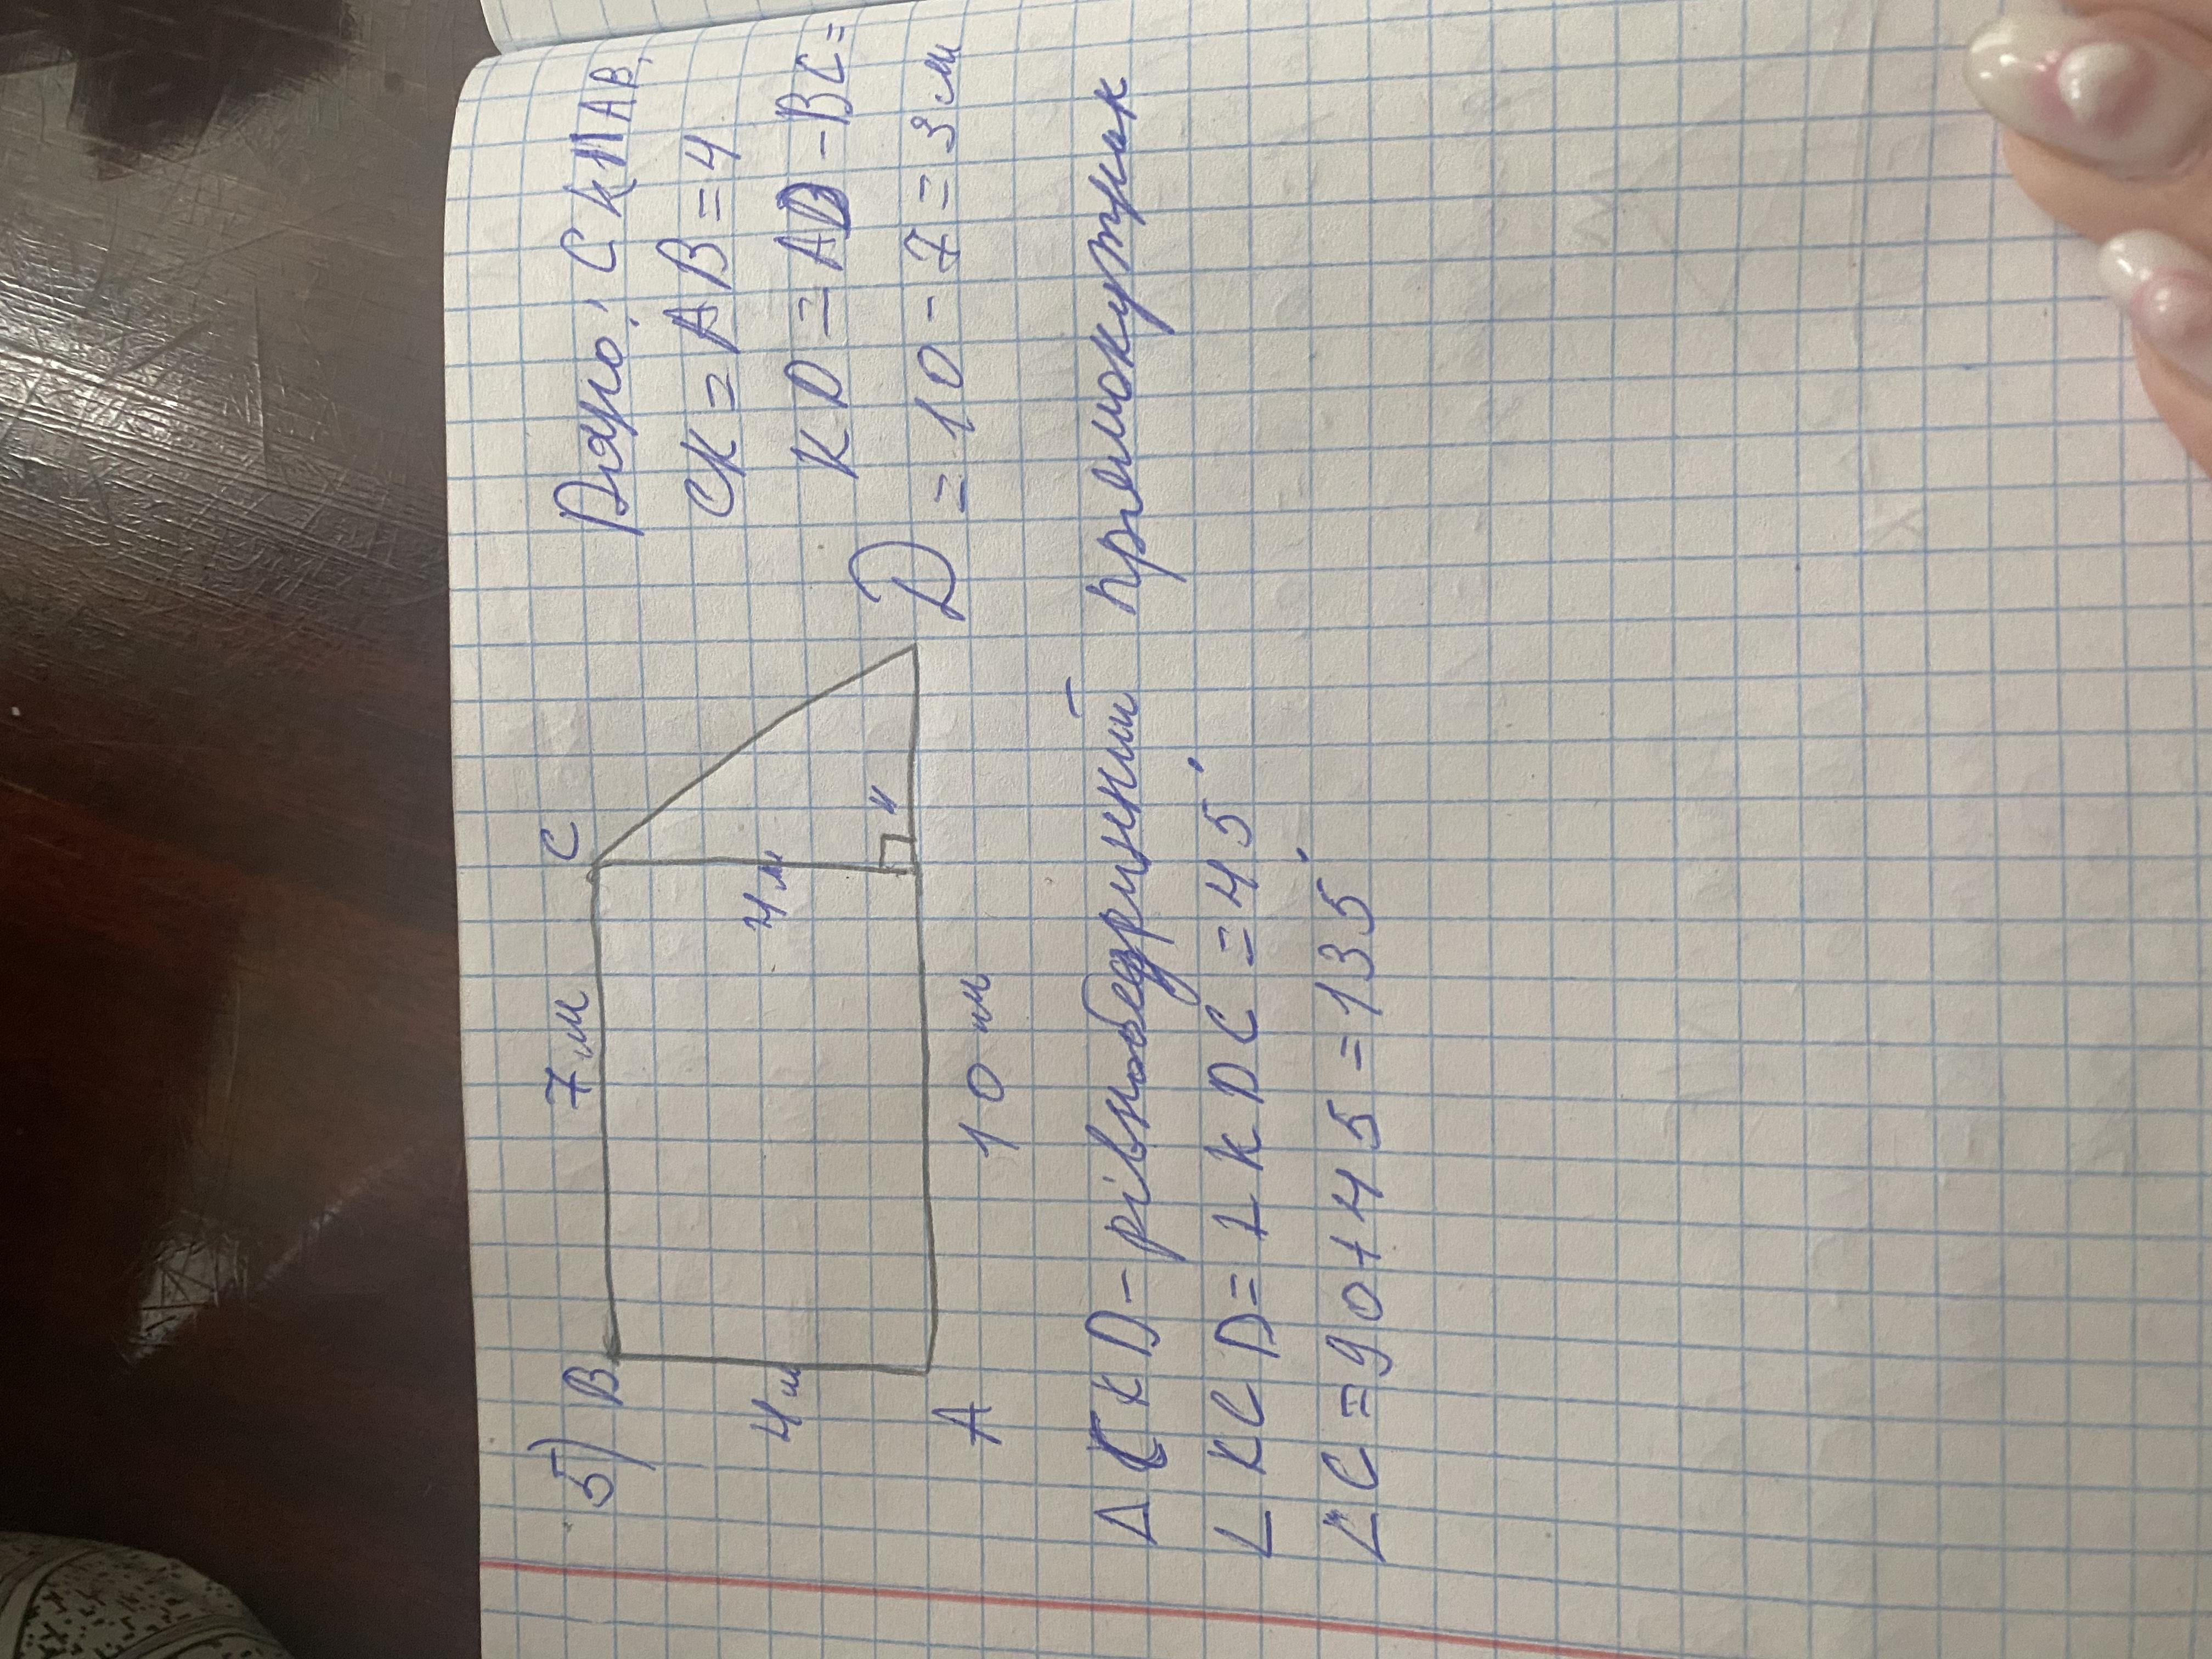 5)
B
7м
C
4м
4м
к
A
10м
D
Дано: CK∥AB,
CK=AB=4
KD=AD-BC=
=10-7=3м
△CKD-рівнобедрений прямокутник
∠KCD=∠KDC=45°
∠C=90+45=135°